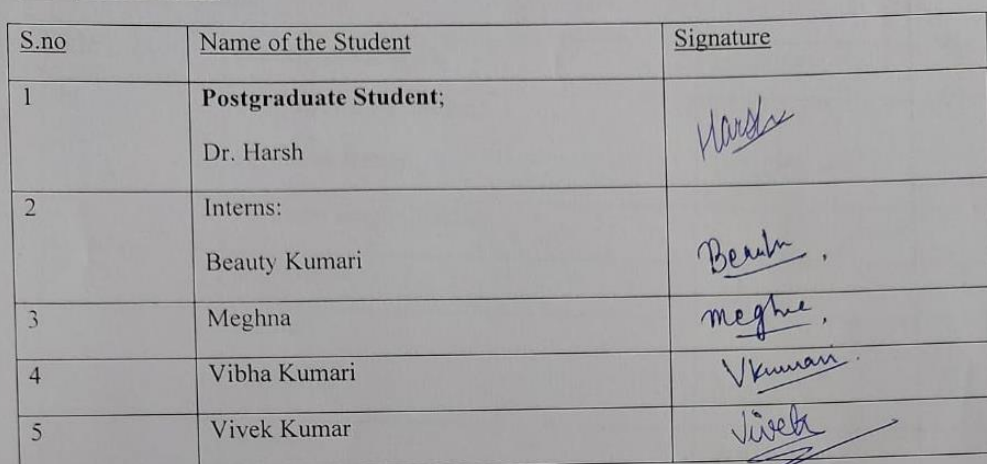 S.no Name of the Student Signature
1 Postgraduate Student;
Dr. Harsh Harsh
2 Interns:
Beauty Kumari
3 Meghna
4 Vibha Kumari VKumari.
5 Vivek Kumar Vivek